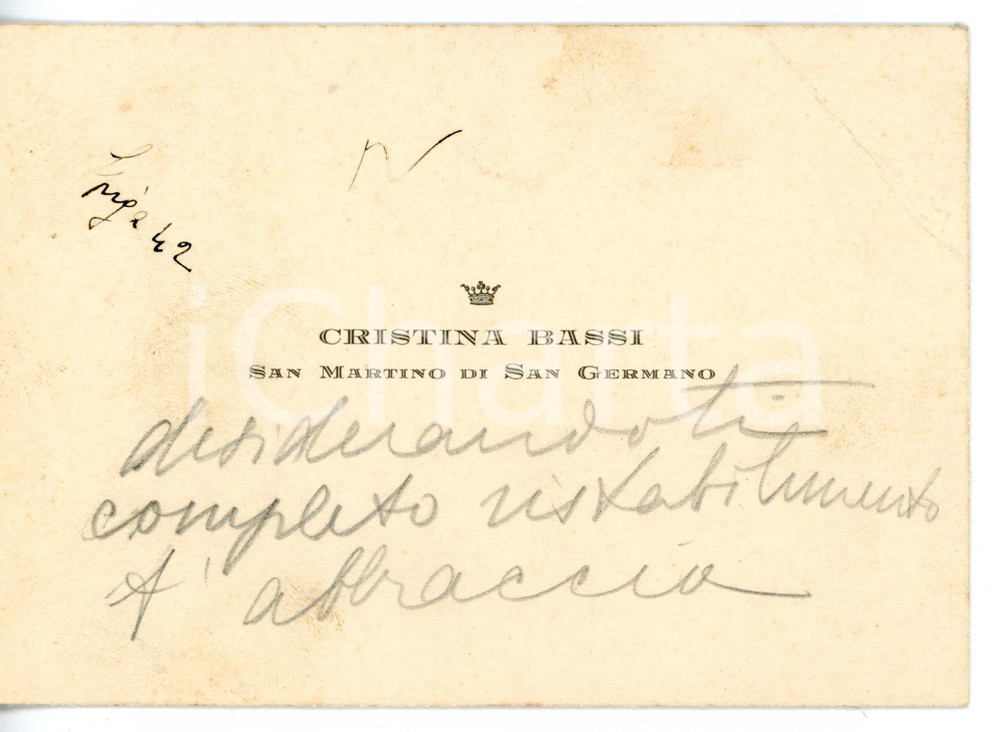 42
CRISTINA BASSI
SAN MARTINO DI SAN GERMANO
iCharta
desiderandoti
completo ristabilimento
t'abbraccia